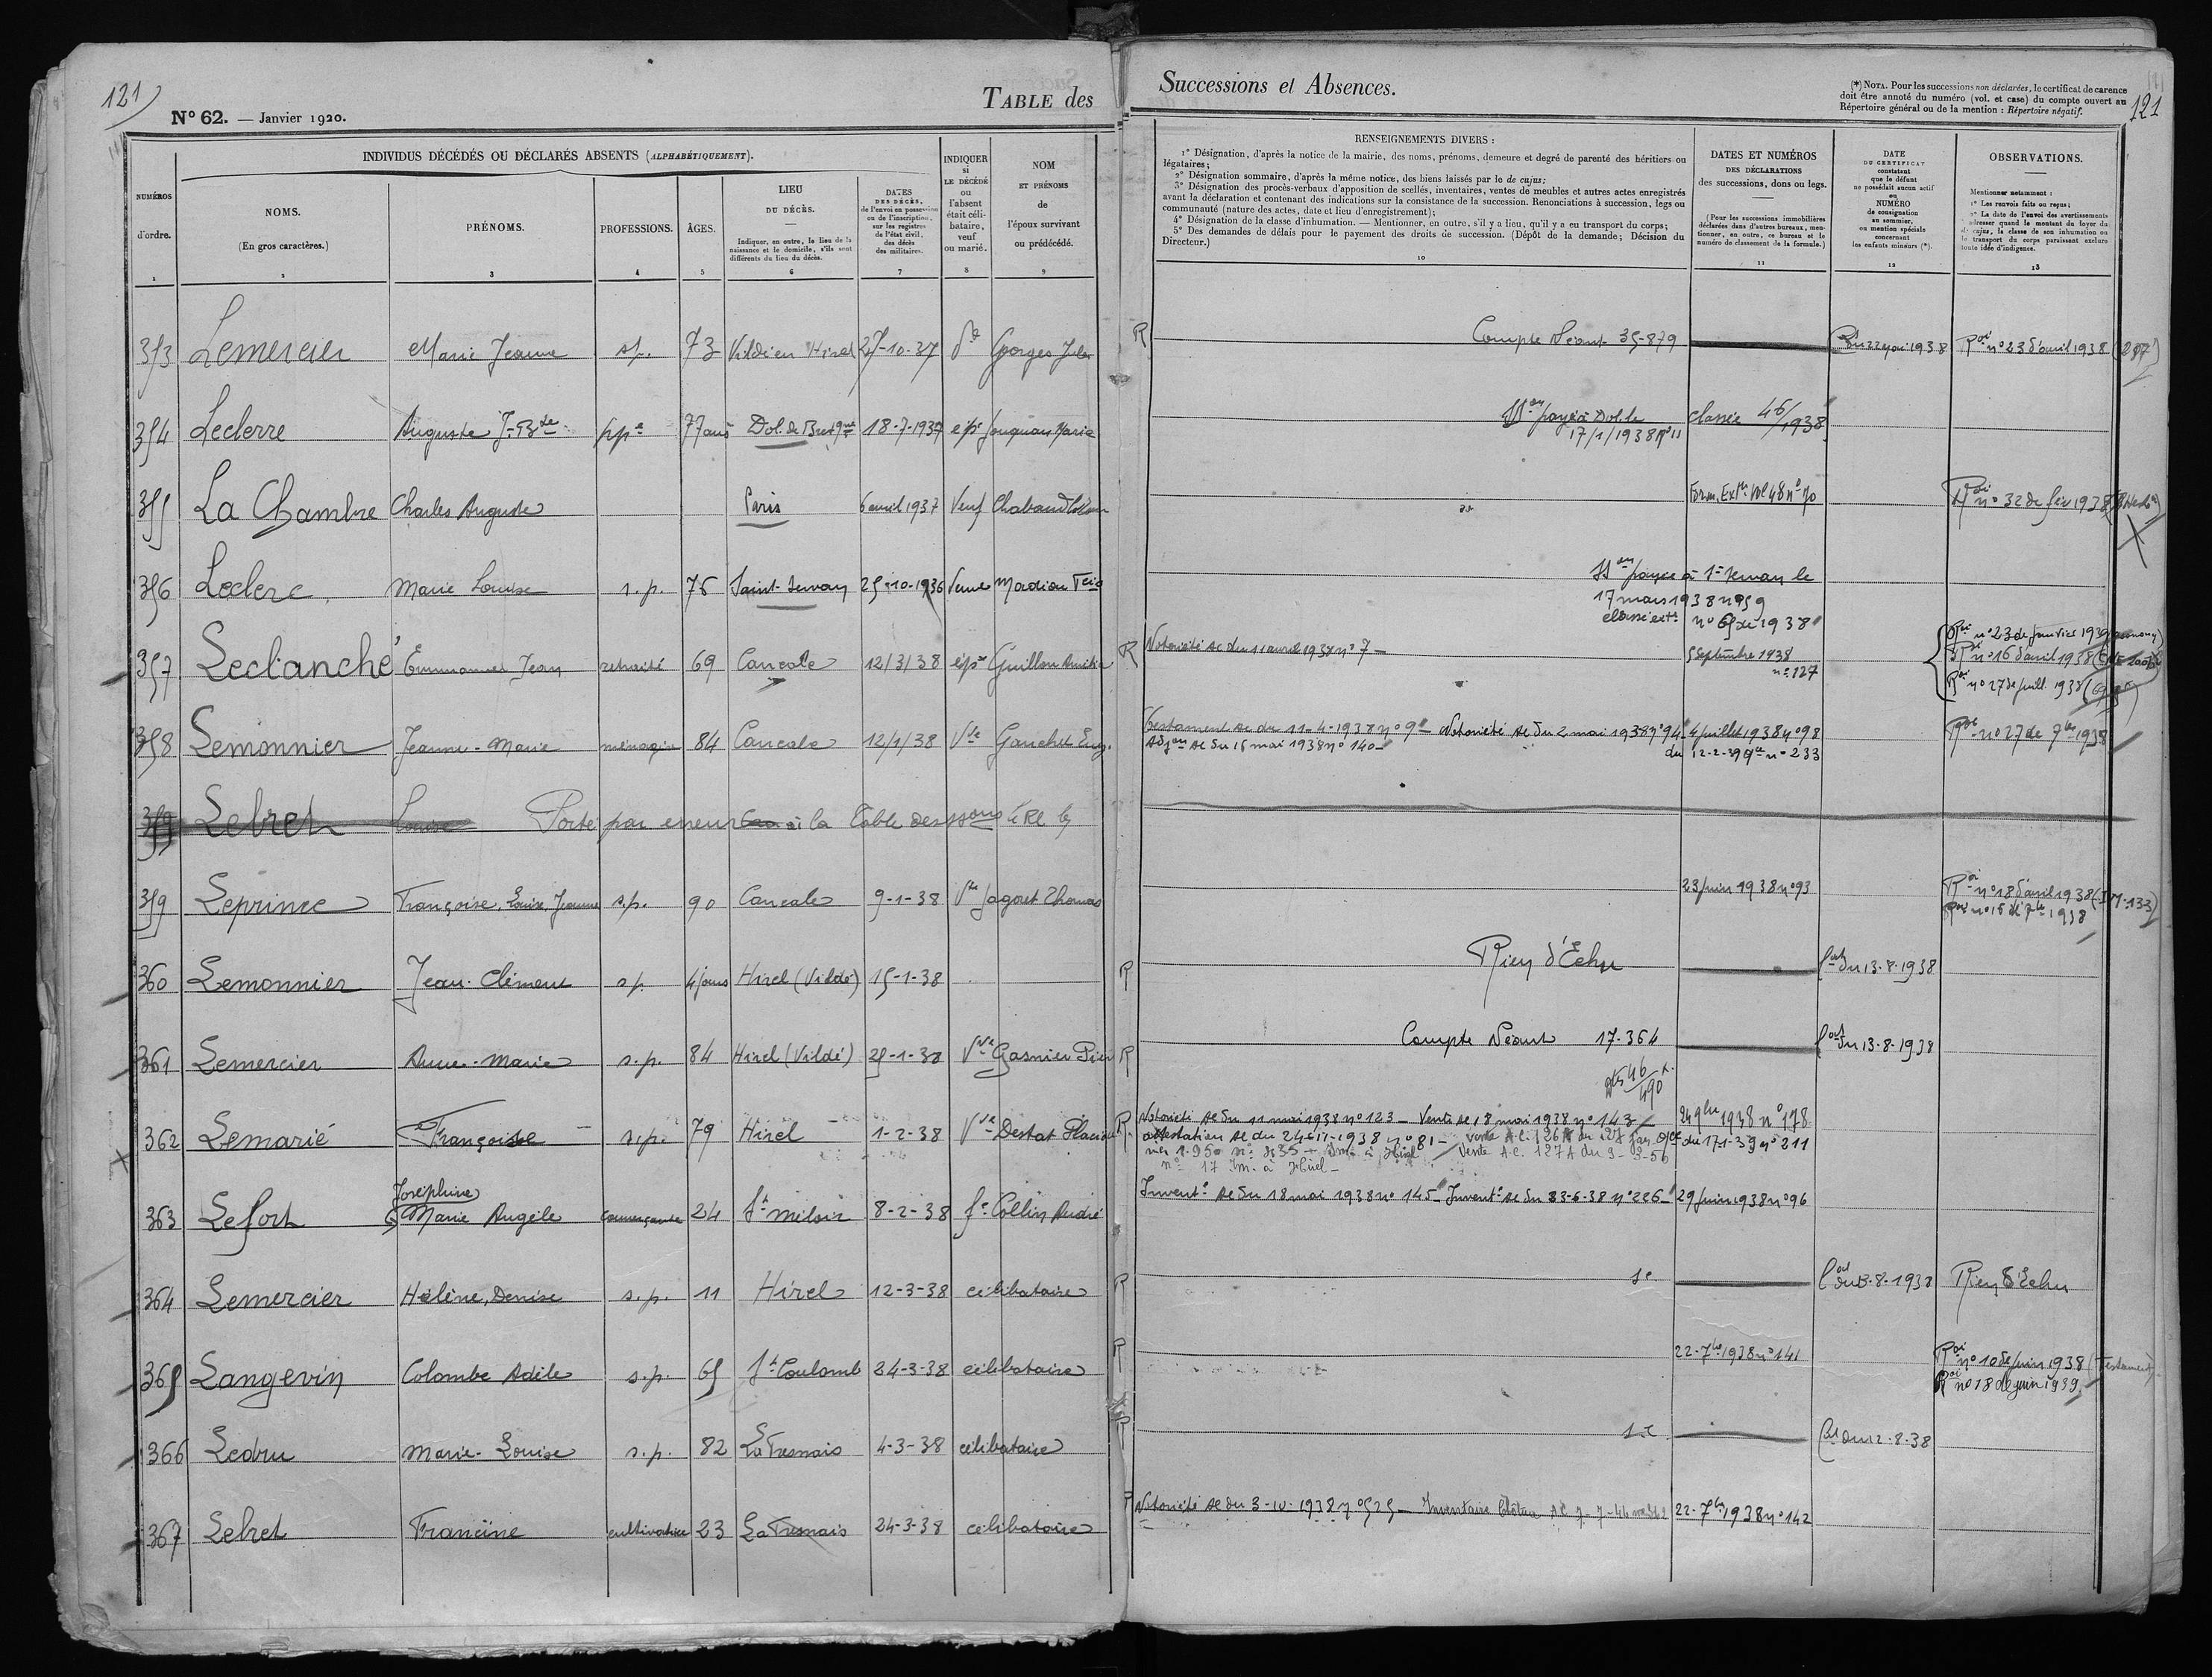 121
N° 62. — Janvier 1920.
TABLE des
Successions et Absences.
(*) NOTA. Pour les successions non déclarées, le certificat de carence
doit être annoté du numéro (vol. et case) du compte ouvert au
Répertoire général ou de la mention : Répertoire négatif.
121
INDIVIDUS DÉCÉDÉS OU DÉCLARÉS ABSENTS (ALPHABÉTIQUEMENT).
NUMÉROS
d'ordre.
1
NOMS.
(En gros caractères.)
2
PRÉNOMS.
3
PROFESSIONS.
4
ÂGES.
5
LIEU
DU DÉCÈS.
Indiquer, en outre, le lieu de la
naissance et le domicile, s'ils sont
différents du lieu du décès.
6
DATES
DES DÉCÈS,
de l'envoi en possession
ou de l'inscription,
sur les registres
de l'état civil,
des décès
des militaires.
7
INDIQUER
si
LE DÉCÉDÉ
ou
l'absent
était céli-
bataire,
veuf
ou marié.
8
NOM
ET PRÉNOMS
de
l'époux survivant
ou prédécédé.
9
RENSEIGNEMENTS DIVERS :
1° Désignation, d'après la notice de la mairie, des noms, prénoms, demeure et degré de parenté des héritiers ou
légataires;
2° Désignation sommaire, d'après la même notice, des biens laissés par le de cujus;
3° Désignation des procès-verbaux d'apposition de scellés, inventaires, ventes de meubles et autres actes enregistrés
avant la déclaration et contenant des indications sur la consistance de la succession. Renonciations à succession, legs ou
communauté (nature des actes, date et lieu d'enregistrement);
4° Désignation de la classe d'inhumation. — Mentionner, en outre, s'il y a lieu, qu'il y a eu transport du corps;
5° Des demandes de délais pour le payement des droits de succession. (Dépôt de la demande; Décision du
Directeur.)
10
DATES ET NUMÉROS
DES DÉCLARATIONS
des successions, dons ou legs.
(Pour les successions immobilières
déclarées dans d'autres bureaux, men-
tionner, en outre, ce bureau et le
numéro de classement de la formule.)
11
DATE
DU CERTIFICAT
constatant
que le défunt
ne possédait aucun actif
ou
NUMÉRO
de consignation
au sommier,
ou mention spéciale
concernant
les enfants mineurs (*).
12
OBSERVATIONS.
Mentionner notamment :
1° Les renvois faits ou reçus;
2° La date de l'envoi des avertissements
à adresser quand le montant du loyer du
de cujus, la classe de son inhumation ou
le transport du corps paraissent exclure
toute idée d'indigence.
13
353 Lemercier Marie Jeanne s.p. 73 Vildé en Hirel 27-10-37 Vve Georges Jules R Compte Néant 35-879 1938 Roi n° 23 d'avril 1938 (287)
354 Leclerre Auguste J-Bte ppe 77 ans Dol de Bretgne 18-7-1937 épx Jouquan Marie payée à Dol le classée 46/1938
17/1/1938 n° 11
355 La Chambre Charles Auguste Paris 6 avril 1937 Veuf Form. Extre Vol 48 n° 70 Roi n° 32 de fév 1938
356 Leclerc Marie Louise s.p. 76 Saint-Servan 25-10-1936 Veuve payée à St Servan le
17 mars 1938 n° 59
classée extre n° 65 de 1938
357 Leclanché Emmanuel Jean retraité 69 Cancale 12/3/38 épx Guillou R Notoriété Ac du 11 avril 1938 n° 7 5 septembre 1938
n° 127
Roi n° 23 de janvier 1939
Roi n° 16 d'avril 1938
Roi n° 27 de juill. 1938
358 Lemonnier Jeanne-Marie ménagère 84 Cancale 12/1/38 Vve Gauchet Eug. Testament Ac du 11-4-1938 n° 9 - Notoriété Ac du 2 mai 1938 n° 94 4 juillet 1938 n° 98 Roi n° 27 de 7bre 1938
Adjon Ac du 15 mai 1938 n° 140 - du 12-2-39 n° 233
359 Lebret Louise Porté par erreur à la Table des
359 Leprince Françoise, Louise, Jeanne s.p. 90 Cancale 9-1-38 Vve Jagoret Thomas 23 juin 1938 n° 93 Roi n° 18 d'avril 1938 (IM-133)
Roi n° 15 de 7bre 1938
360 Lemonnier Jean-Clément s.p. 4 jours Hirel (Vildé) 15-1-38 R Rien d'Echu Cat du 13-8-1938
361 Lemercier Anne-Marie s.p. 84 Hirel (Vildé) 25-1-38 Vve Gasnier Pier R Compte Néant 17-364 Cat du 13-8-1938
46/490
362 Lemarié Françoise s.p. 79 Hirel 1-2-38 Vve Destat R Notoriété Ac du 11 mai 1938 n° 123 - Vente Ac 18 mai 1938 n° 143 24 9bre 1938 n° 178
attestation Ac du 24-11-1938 n° 81 - Vente A.C. 126A du 27 jan. du 17-1-39 n° 211
Vente A.C. 127A du 9-3-56
n° 17 Im. à Hirel -
363 Lefort Joséphine
Marie Angèle commerçante 24 St Méloir 8-2-38 fe Collin André Inventre Ac du 18 mai 1938 n° 145 - Inventre Ac du 23-6-38 n° 226 29 juin 1938 n° 96
364 Lemercier Hélène, Denise s.p. 11 Hirel 12-3-38 célibataire R Cat du 13-8-1938 Rien d'Echu
365 Langevin Colombe Adèle s.p. 65 St Coulomb 24-3-38 célibataire R 22-7bre 1938 n° 141 Roi n° 10 de juin 1938 (Testament)
Roi n° 18 de juin 1939
366 Ledru Marie-Louise s.p. 82 La Fresnais 4-3-38 célibataire R Cat du 12-8-38
367 Lebret Francine cultivatrice 23 La Fresnais 24-3-38 célibataire R Notoriété Ac du 3-10-1938 n° 525 - Inventaire 22-7bre 1938 n° 142